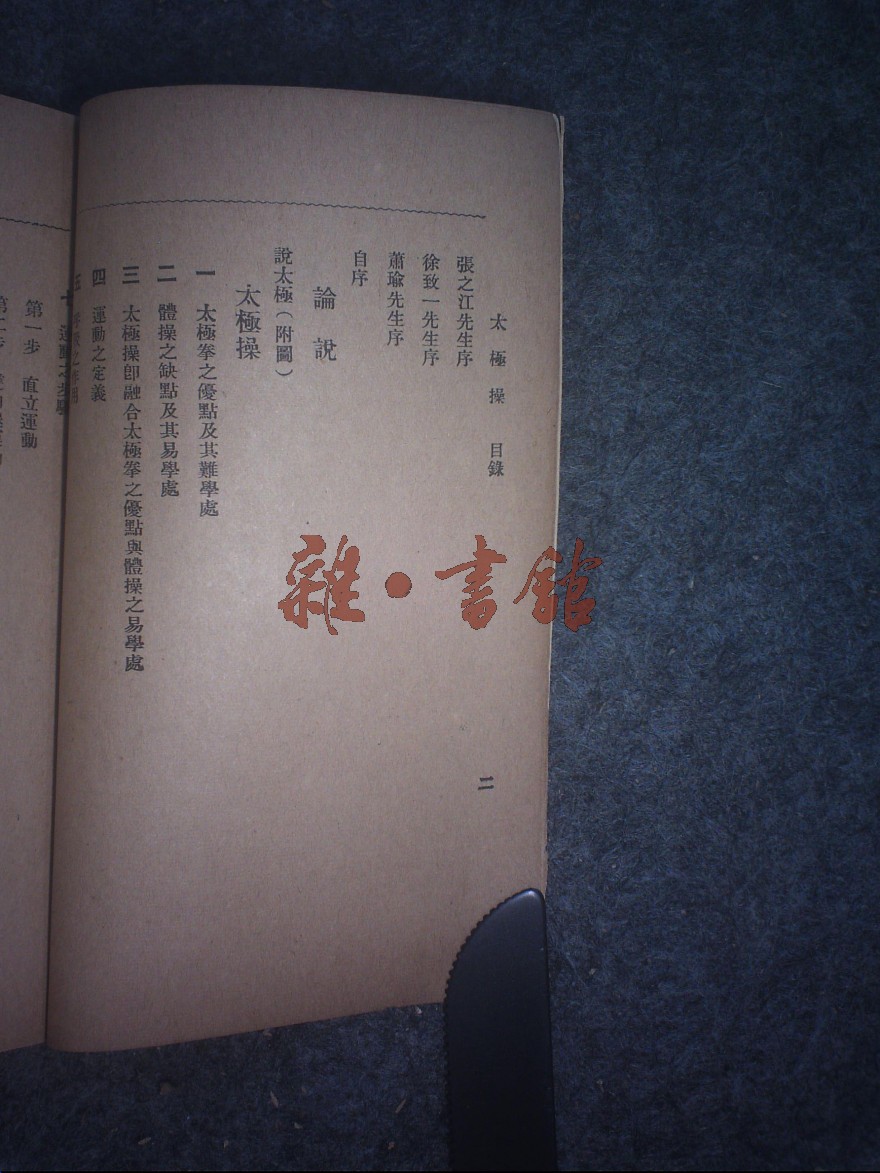 太極操 目錄
二
張之江先生序
徐致一先生序
蕭瑜先生序
自序
論說
說太極(附圖)
太極操
一 太極拳之優點及其難學處
二 體操之缺點及其易學處
三 太極操卽融合太極拳之優點與體操之易學處
四 運動之定義
五
第一步 直立運動
雜·書館